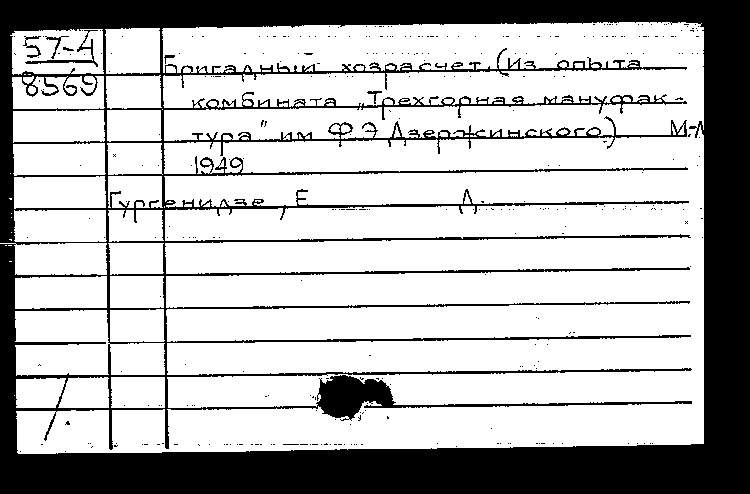 57-4
8569
Бригадный хозрасчет. (Из опыта
комбината „Трехгорная мануфак-
тура" им Ф Э Дзержинского) М-Л
1949
Гургенидзе, Е Д.